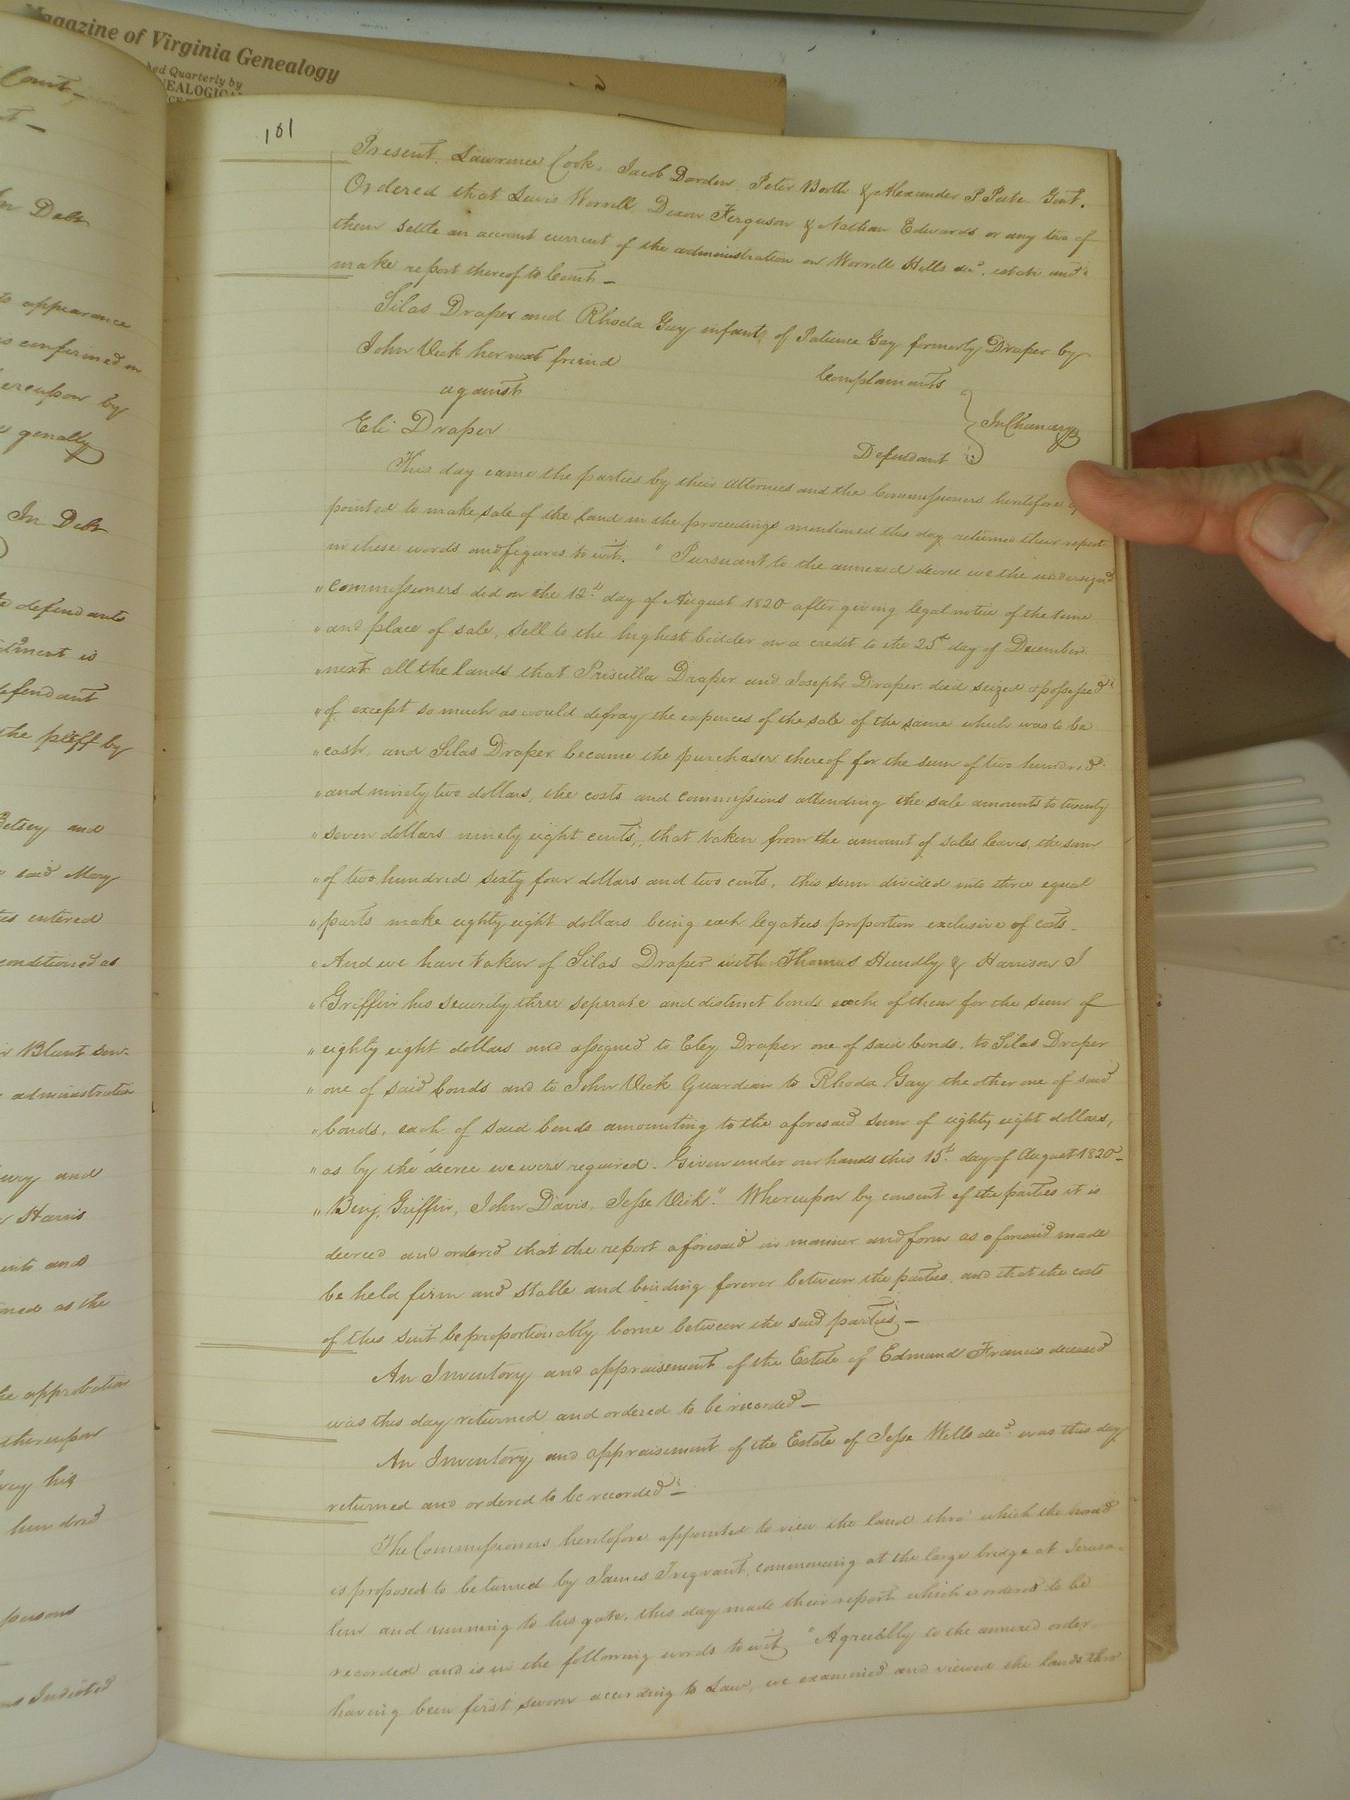 Magazine of Virginia Genealogy
Quarterly by
Court –
In Debt
to appearance
is confirmed on
hereupon by
genally
In Debt
defendants
is
defendant
the plff by
Betsey and
said Mary
entered
conditioned as
Blunt
administration
and
Harris
and
as the
the approbation
thereupon
his
hundred
persons
Indicted
181
Present. Lawrence Cook, Jacob Darden, Peter Booth & Alexander P Peete Gent.
Ordered that Lewis Worrell, Dixon Ferguson & Nathan Edwards or any two of
them settle an account current of the administration on Worrell Hills decd. estate and
make report thereof to Court –
Silas Draper and Rhoda Gay infant of Patience Gay formerly Draper by
John Vick her next friend
Complainants
against
In Chancery
Eli Draper
Defendant
This day came the parties by their attornies and the Commissioners heretofore
pointed to make sale of the land in the proceedings mentioned this day returned their report
in these words and figures to wit. " Pursuant to the annexed decree we the undersigned
" commissioners did on the 12th day of August 1820 after giving legal notice of the time
" and place of sale, sell to the highest bidder on a credit to the 25th day of December
" next all the lands that Priscilla Draper and Joseph Draper died seized & possessed
" of except so much as would defray the expences of the sale of the same which was to be
" cash and Silas Draper became the purchaser thereof for the sum of two hundred
" and ninety two dollars, the costs and commissions attending the sale amounts to twenty
" seven dollars ninety eight cents, that taken from the amount of sales leaves, the sum
" of two hundred sixty four dollars and two cents, this sum divided into three equal
" parts make eighty eight dollars being each legatees proportion exclusive of costs.
" And we have taken of Silas Draper with Thomas Hundly & Harrison J
" Griffin his security three seperate and distinct bonds each of them for the sum of
" eighty eight dollars and assigned to Eley Draper one of said bonds, to Silas Draper
" one of said bonds and to John Vick Guardian to Rhoda Gay the other one of said
" bonds, each of said bonds amounting to the aforesaid sum of eighty eight dollars,
" as by the decree we were required. Given under our hands this 15th day of August 1820 –
" Benj. Griffin, John Davis, Jesse Vick." Whereupon by consent of the parties it is
decreed and ordered that the report aforesaid in manner and form as aforesaid made
be held firm and stable and binding forever between the parties, and that the costs
of this suit be proportionably borne between the said parties –
An Inventory and appraisement of the Estate of Edmund Francis deceased
was this day returned and ordered to be recorded –
An Inventory and appraisement of the Estate of Jesse Wells decd. was this day
returned and ordered to be recorded –
The Commissioners heretofore appointed to view the land thro' which the road
is proposed to be turned by James Tregvant, commencing at the large bridge at Jerusa-
lem and running to his gate, this day made their report which is ordered to be
recorded and is in the following words to wit, "Agreeably to the annexed order
having been first sworn according to Law, we examined and viewed the lands thro